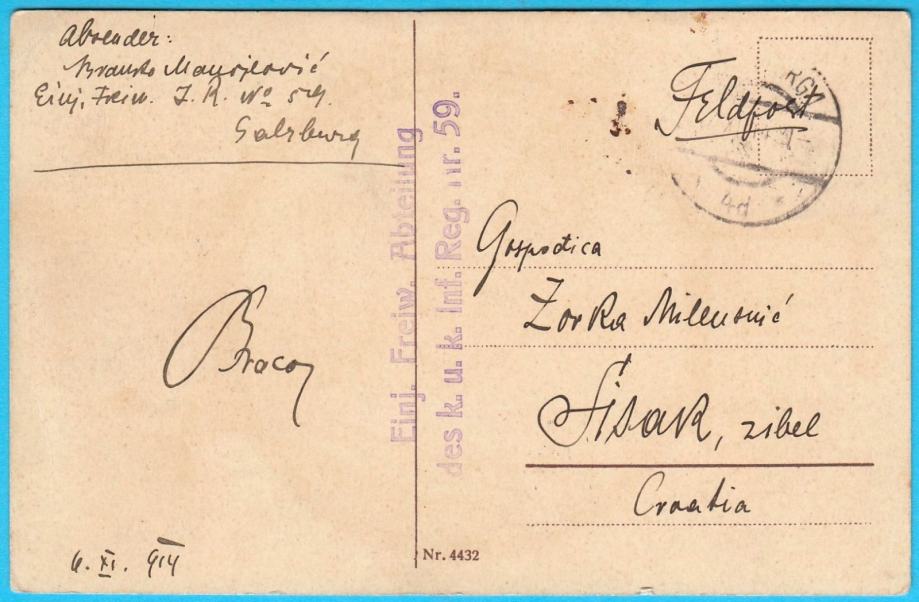 Absender:
Branko Manojlović
Einj. Freiw. I. R. No 59.
Salzburg
Feldpost
RG
4d
Einj. Freiw. Abteilung
des k. u. k. Inf. Reg. Nr. 59.
Gospođica
Zorka Mileusnić
Sisak, zibel
Croatia
Braco
6. XI. 914
Nr. 4432